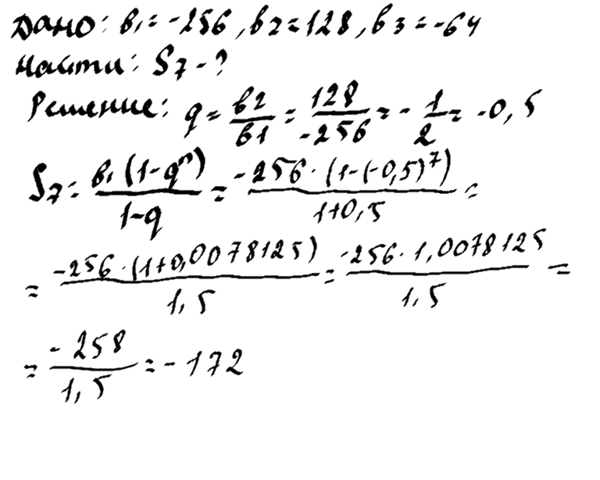 Дано: в₁ = -256, в2 = 128, в3 = -64
Найти: S₇ - ?
Решение: q = в2/в1 = 128/-256 = - 1/2 = -0,5
S₇ = в₁(1-qⁿ)/1-q = -256·(1-(-0,5)⁷)/1+0,5 =
= -256·(1+0,0078125)/1,5 = -256·1,0078125/1,5 =
= -258/1,5 = -172